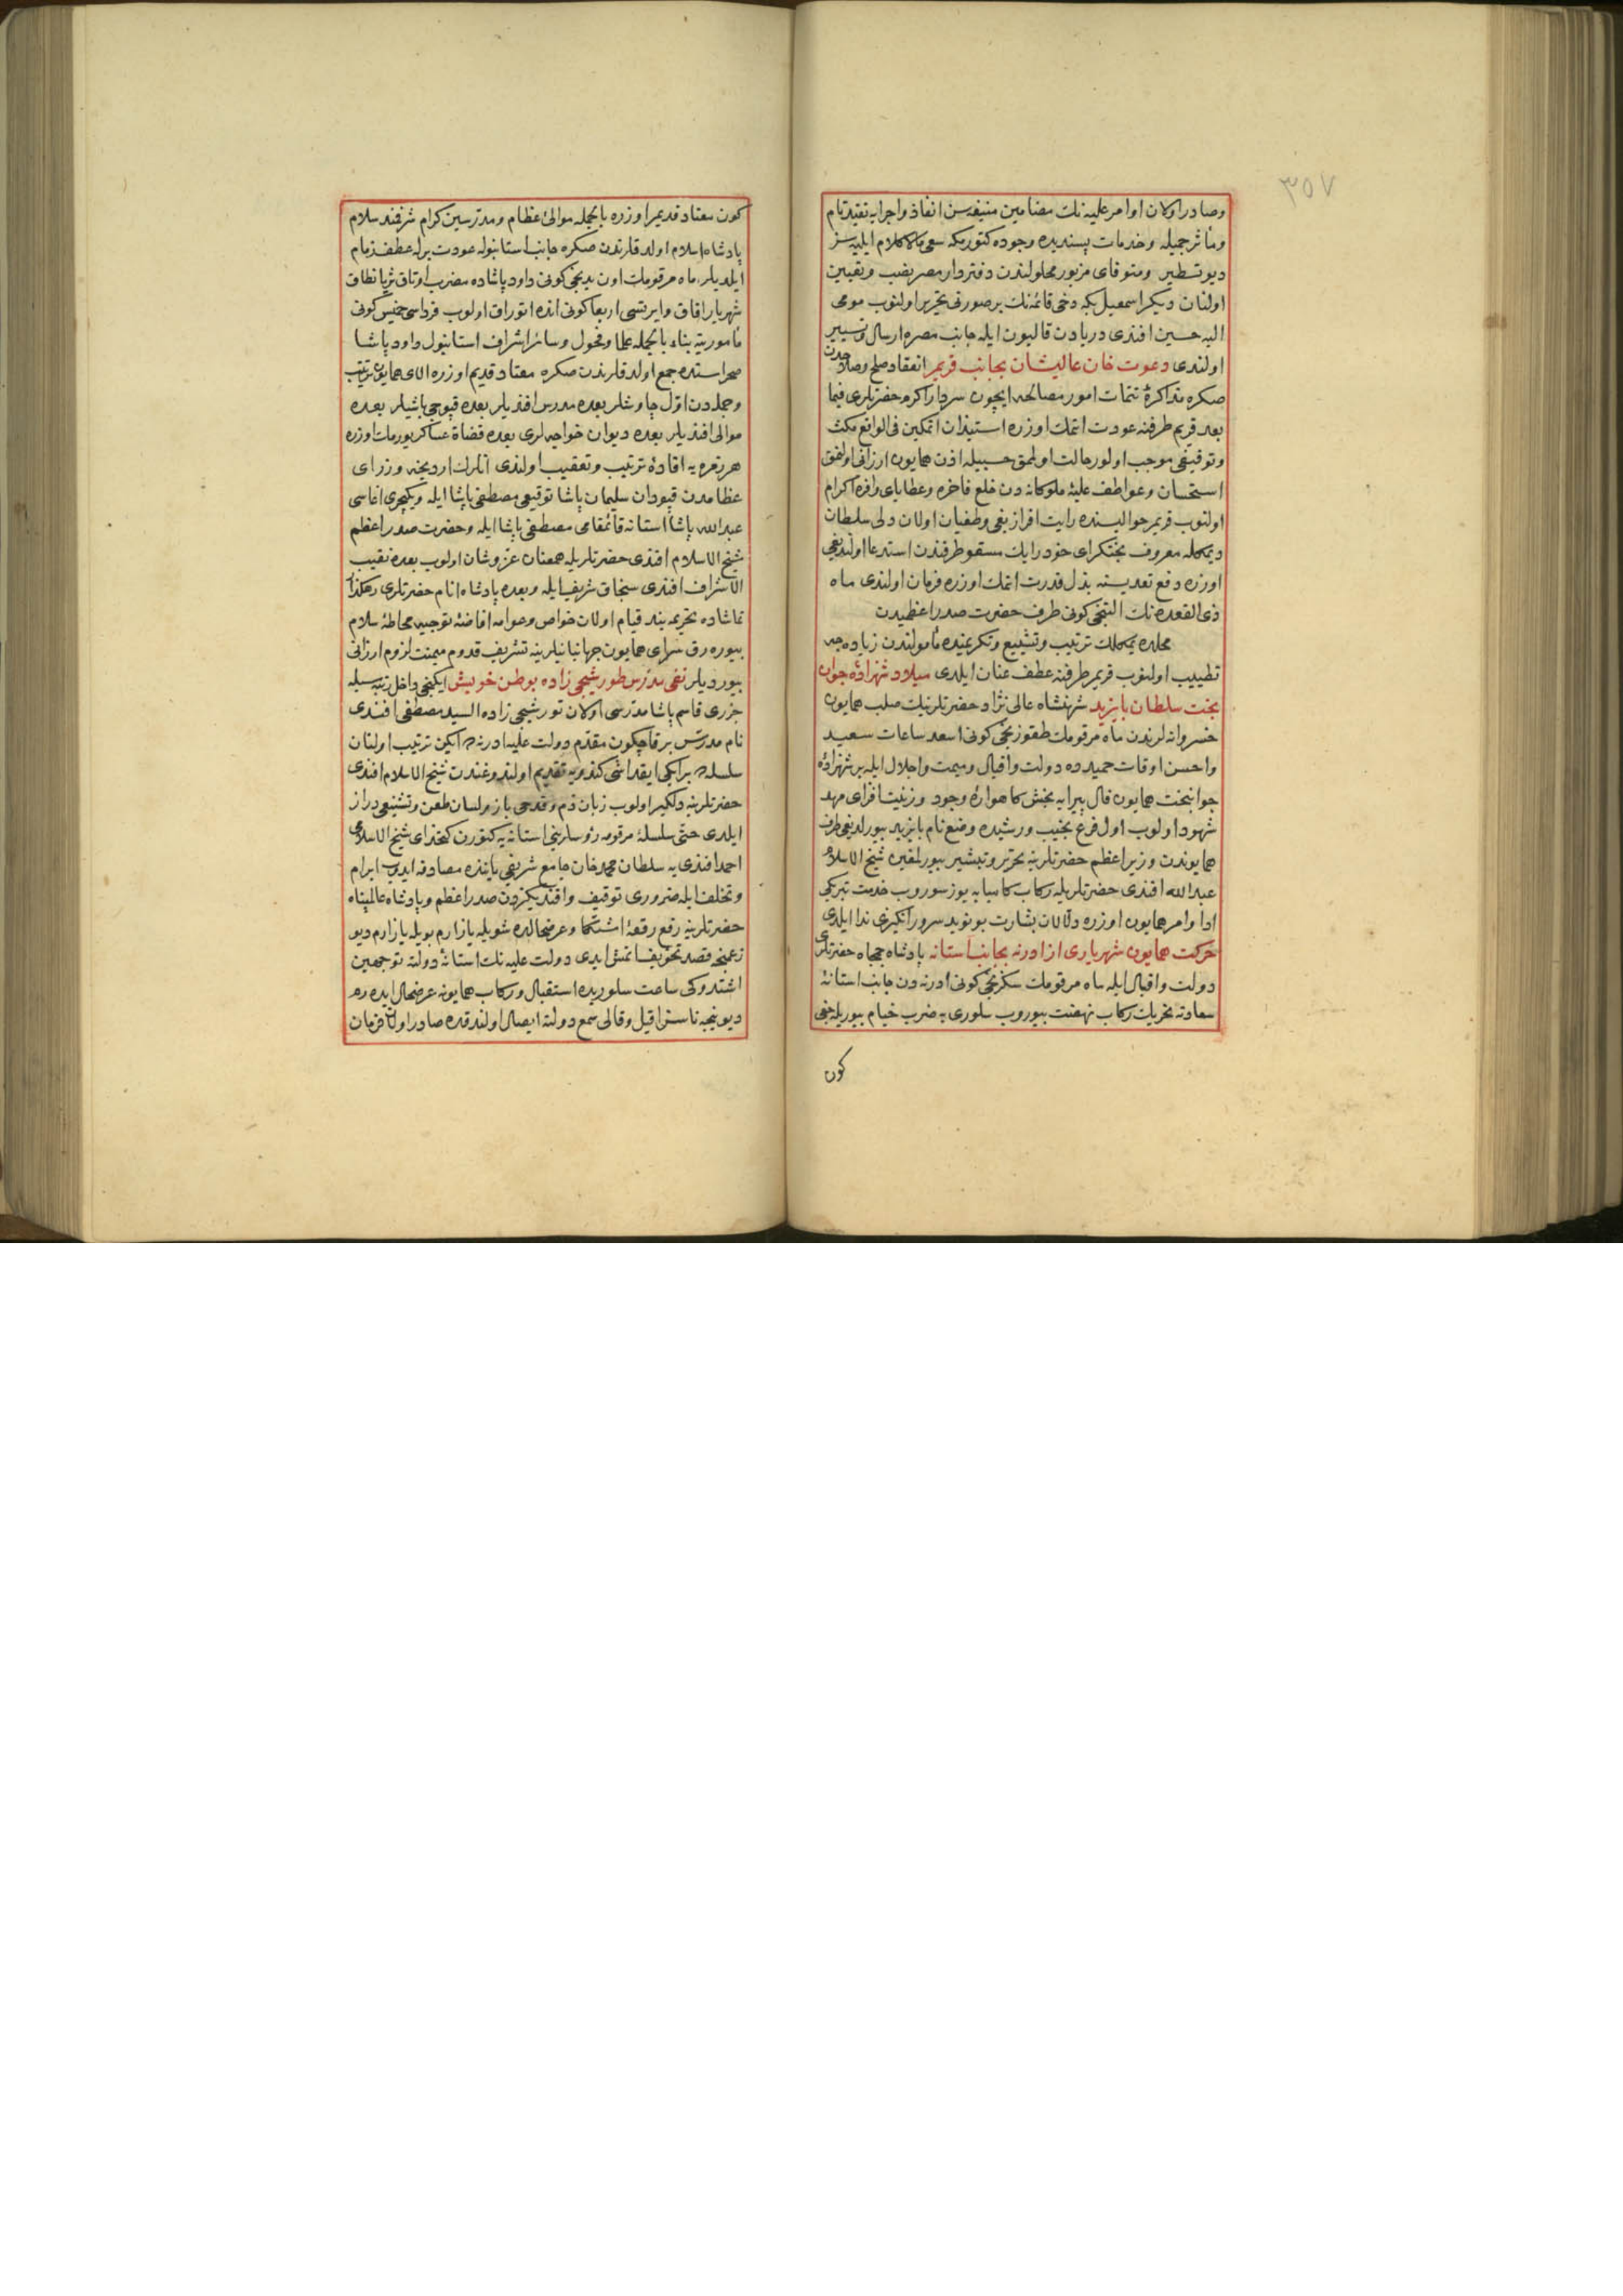 ٣٥٧
وصادر اولان اوامر عليه نك مضامين منيفه سن انفاذ واجرايه تقيد تام
ومآثر جميله وخدمات پسنديده وجوده كتورمكه سعى مالاكلام ايليه سز
ديو تسطير ومتوفاى مزبور محلولندن دفتردار مصر نصب وتعيين
اولنان ديكر اسمعيل بكه دخى قائمه نك بر صورتى تحرير اولنوب مومى
اليه حسين افندى دريادن قاليون ايله جانب مصره ارسال وتسيير
اولندى دعوت خان عاليشان بجانب قريم انعقاد صلح وصلاحدن
صكره مذاكرۀ تتمات امور مصالحه ايچون سردار اكرم حضرتلرى فيما
بعد قريم طرفنه عودت اتمك اوزره استيذان اتمكين فى الواقع مكث
وتوقيفى موجب اولور حالت اولمق حسبيله اذن همايون ارزانى اولنمق
استحسان وعواطف عليۀ ملوكانه دن خلع فاخره وعطاياى وافره اكرام
اولنوب قريم حواليسنده رايت افراز بغى وطغيان اولان دلى سلطان
ديمكله معروف بختكراى خود رايك مسقو طرفندن استدعا اولنديغى
اوزره دفع تعديسنه بذل قدرت اتمك اوزره فرمان اولندى ماه
ذى القعده نك التنجى كونى طرف حضرت صدر اعظميدن
محلده يمكلك ترتيب وتشييع وتكريمنده مأمولندن زياده جه
تطييب اولنوب قريم طرفنه عطف عنان ايلدى ميلاد شهزادۀ جوان
بخت سلطان بايزيد شهنشاه عالى نژاد حضرتلرينك صلب همايون
خسروانه لرندن ماه مرقومك طقوزنجى كونى اسعد ساعات سعيد
واحسن اوقات حميده ده دولت واقبال وميمنت واجلال ايله بر شهزادۀ
جوانبخت همايون فال پيرايه بخش كاهوارۀ وجود وزينت افزاى مهد
شهود اولوب اول فرع نجيب ورشيده وضع نام بايزيد بيورلديغى طرف
همايوندن وزير اعظم حضرتلرينه تحرير وتبشير بيورلمغين شيخ الاسلام
عبد الله افندى حضرتلريله ركاب كاميابه يوز سوروب خدمت تبريكى
ادا وامر همايون اوزره دلالان بشارت بو نويد سرور انكيزى ندا ايلدى
حركت همايون شهريارى از ادرنه بجانب استانه پادشاه جمجاه حضرتلرى
دولت واقبال ايله ماه مرقومك سكزنجى كونى ادرنه دن جانب استانۀ
سعادته تحريك ركاب نهضت بيوروب سلورى يه ضرب خيام بيوريله جغى
كون
كون معتاد قديم اوزره بالجمله موالئ عظام ومدرسين كرام شرفند سلام
پادشاه اسلام اولدقلرندن صكره جانب استانبوله عودت برله عطف زمام
ايلديلر ماه مرقومك اون يدنجى كونى داود پاشاده مضرب اوتاق ثريا نطاق
شهريار افاق وايرتسى اربعا كونى انده اتوراق اولوب فرداسى خميس كونى
مأموريته بناء بالجمله علما وفحول وسائر اشراف استانبول داود پاشا
صحراسنده جمع اولدقلرندن صكره معتاد قديم اوزره الاى همايون ترتيب
وجمله دن اول چاوشلر بعده مدرس افنديلر بعده قپوجى باشيلر بعده
موالى افنديلر بعده ديوان خواجه لرى بعده قضاة عساكر بيورملك اوزره
هر زمره يه افاده ترتيب وتعقيب اولندى انلرك اردينجه وزراى
عظامدن قپودان سليمان پاشا توقيعى مصطفى پاشا ايله ويكيچرى اغاسى
عبد الله پاشا استانه قائمقامى مصطفى پاشا ايله وحضرت صدر اعظم
شيخ الاسلام افندى حضرتلريله همعنان عز وشان اولوب بعده نقيب
الاشراف افندى سنجاق شريف ايله وبعده پادشاه انام حضرتلرى رهكذار
تماشاده تحريمه بند قيام اولان خواص وعوامه افاضۀ توجيه محاطۀ سلام
بيوره رق سراى همايون جهانبانيلرينه تشريف قدوم ميمنت لزوم ارزانى
بيورديلر نفى مدرس طورشيجى زاده بوطن خويش ايكنجى داخل رتبه سيله
جزرى قاسم پاشا مدرسى اولان تورشيجى زاده السيد مصطفى افندى
نام مدرس بر قاچ كون مقدم دولت عليه ادرنه ده ايكن ترتيب اولنان
سلسله ده بر ايكى ايقداشى كندويه تقديم اولندوغندن شيخ الاسلام افندى
حضرتلرينه دلكير اولوب زبان ذم وقدحى باز ولسان طعن وتشنيعى دراز
ايلدى حتى سلسلۀ مرقومه رؤسلرينى استانه يه كتورن كتخداى شيخ الاسلامى
احمد افندى يه سلطان محمد خان جامع شريفى ياننده مصادفه ايدوب ابرام
وتخلف ايله ضرورى توقيف وافنديكزدن صدر اعظم وپادشاه عالمپناه
حضرتلرينه رفع رقعۀ اشتكا وعرضحالده شويله يازارم بويله يازارم ديو
زعمنجه قصد تخويف اتمش ايدى دولت عليه نك استانۀ دولته توجهين
اشتدوكى ساعت سلوريده استقبال وركاب همايونه عرضحال ايده رم
ديو نيجه ناسزا قيل وقالى سمع دولته ايصال اولندقده صادر اولان فرمان